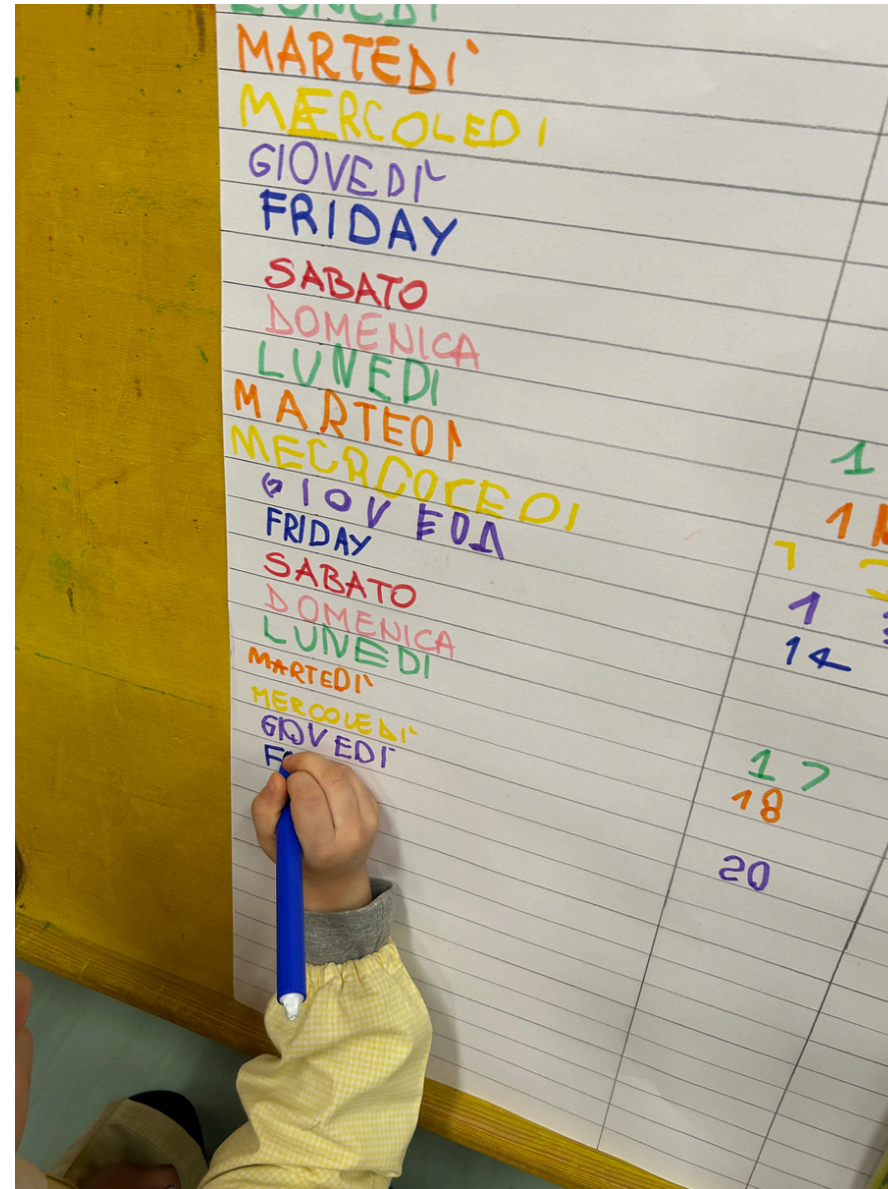 LUNEDI
MARTEDI`
MÆRCOLEDI
GIOVEDÌ
FRIDAY
SABATO
DOMENICA
LUNEDI
1
MARTEDI
1
MECRCOLEDI
1
GIOVEDI
1
FRIDAY
14
SABATO
DOMENICA
LUNEDI
17
MARTEDÌ
18
MERCOLEDÌ
GIOVEDÌ
20